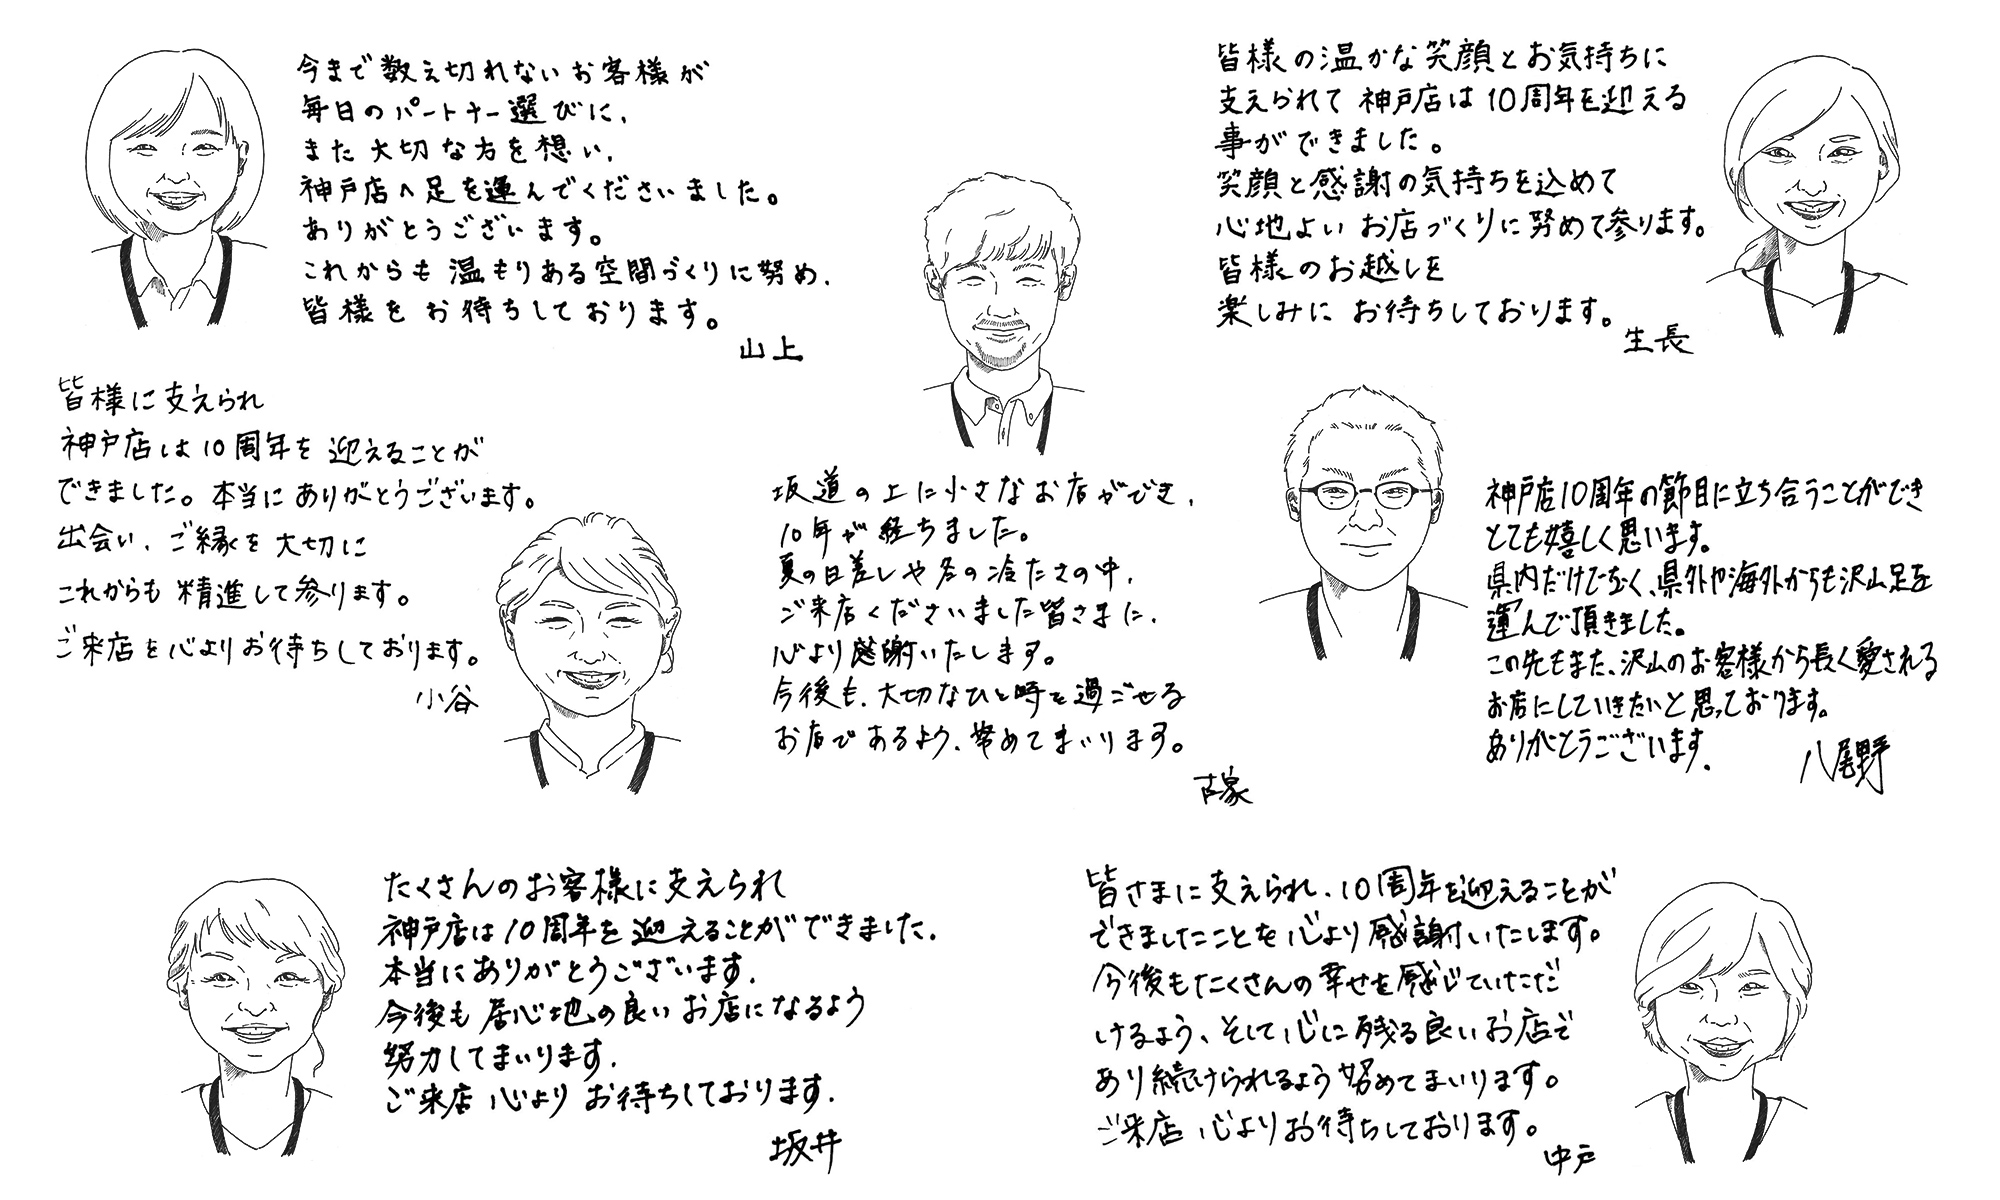 今まで数え切れないお客様が
毎日のパートナー選びに、
また大切な方を想い、
神戸店へ足を運んでくださいました。
ありがとうございます。
これからも温もりある空間づくりに努め、
皆様をお待ちしております。
山上
皆様の温かな笑顔とお気持ちに
支えられて神戸店は10周年を迎える
事ができました。
笑顔と感謝の気持ちを込めて
心地よいお店づくりに努めて参ります。
皆様のお越しを
楽しみにお待ちしております。
生長
皆様に支えられ
神戸店は10周年を迎えることが
できました。本当にありがとうございます。
出会い、ご縁を大切に
これからも精進して参ります。
ご来店を心よりお待ちしております。
小谷
坂道の上に小さなお店ができ、
10年が経ちました。
夏の日差しや冬の冷たさの中、
ご来店くださいました皆さまに、
心より感謝いたします。
今後も、大切なひと時を過ごせる
お店であるよう、努めてまいります。
古家
神戸店10周年の節目に立ち合うことができ
とても嬉しく思います。
県内だけでなく、県外や海外からも沢山足を
運んで頂きました。
この先もまた、沢山のお客様から長く愛される
お店にしていきたいと思っております。
ありがとうございます。
八尾野
たくさんのお客様に支えられ
神戸店は10周年を迎えることができました。
本当にありがとうございます。
今後も居心地の良いお店になるよう
努力してまいります。
ご来店心よりお待ちしております。
坂井
皆さまに支えられ、10周年を迎えることが
できましたことを心より感謝いたします。
今後もたくさんの幸せを感じていただ
けるよう、そして心に残る良いお店で
あり続けられるよう努めてまいります。
ご来店心よりお待ちしております。
中戸